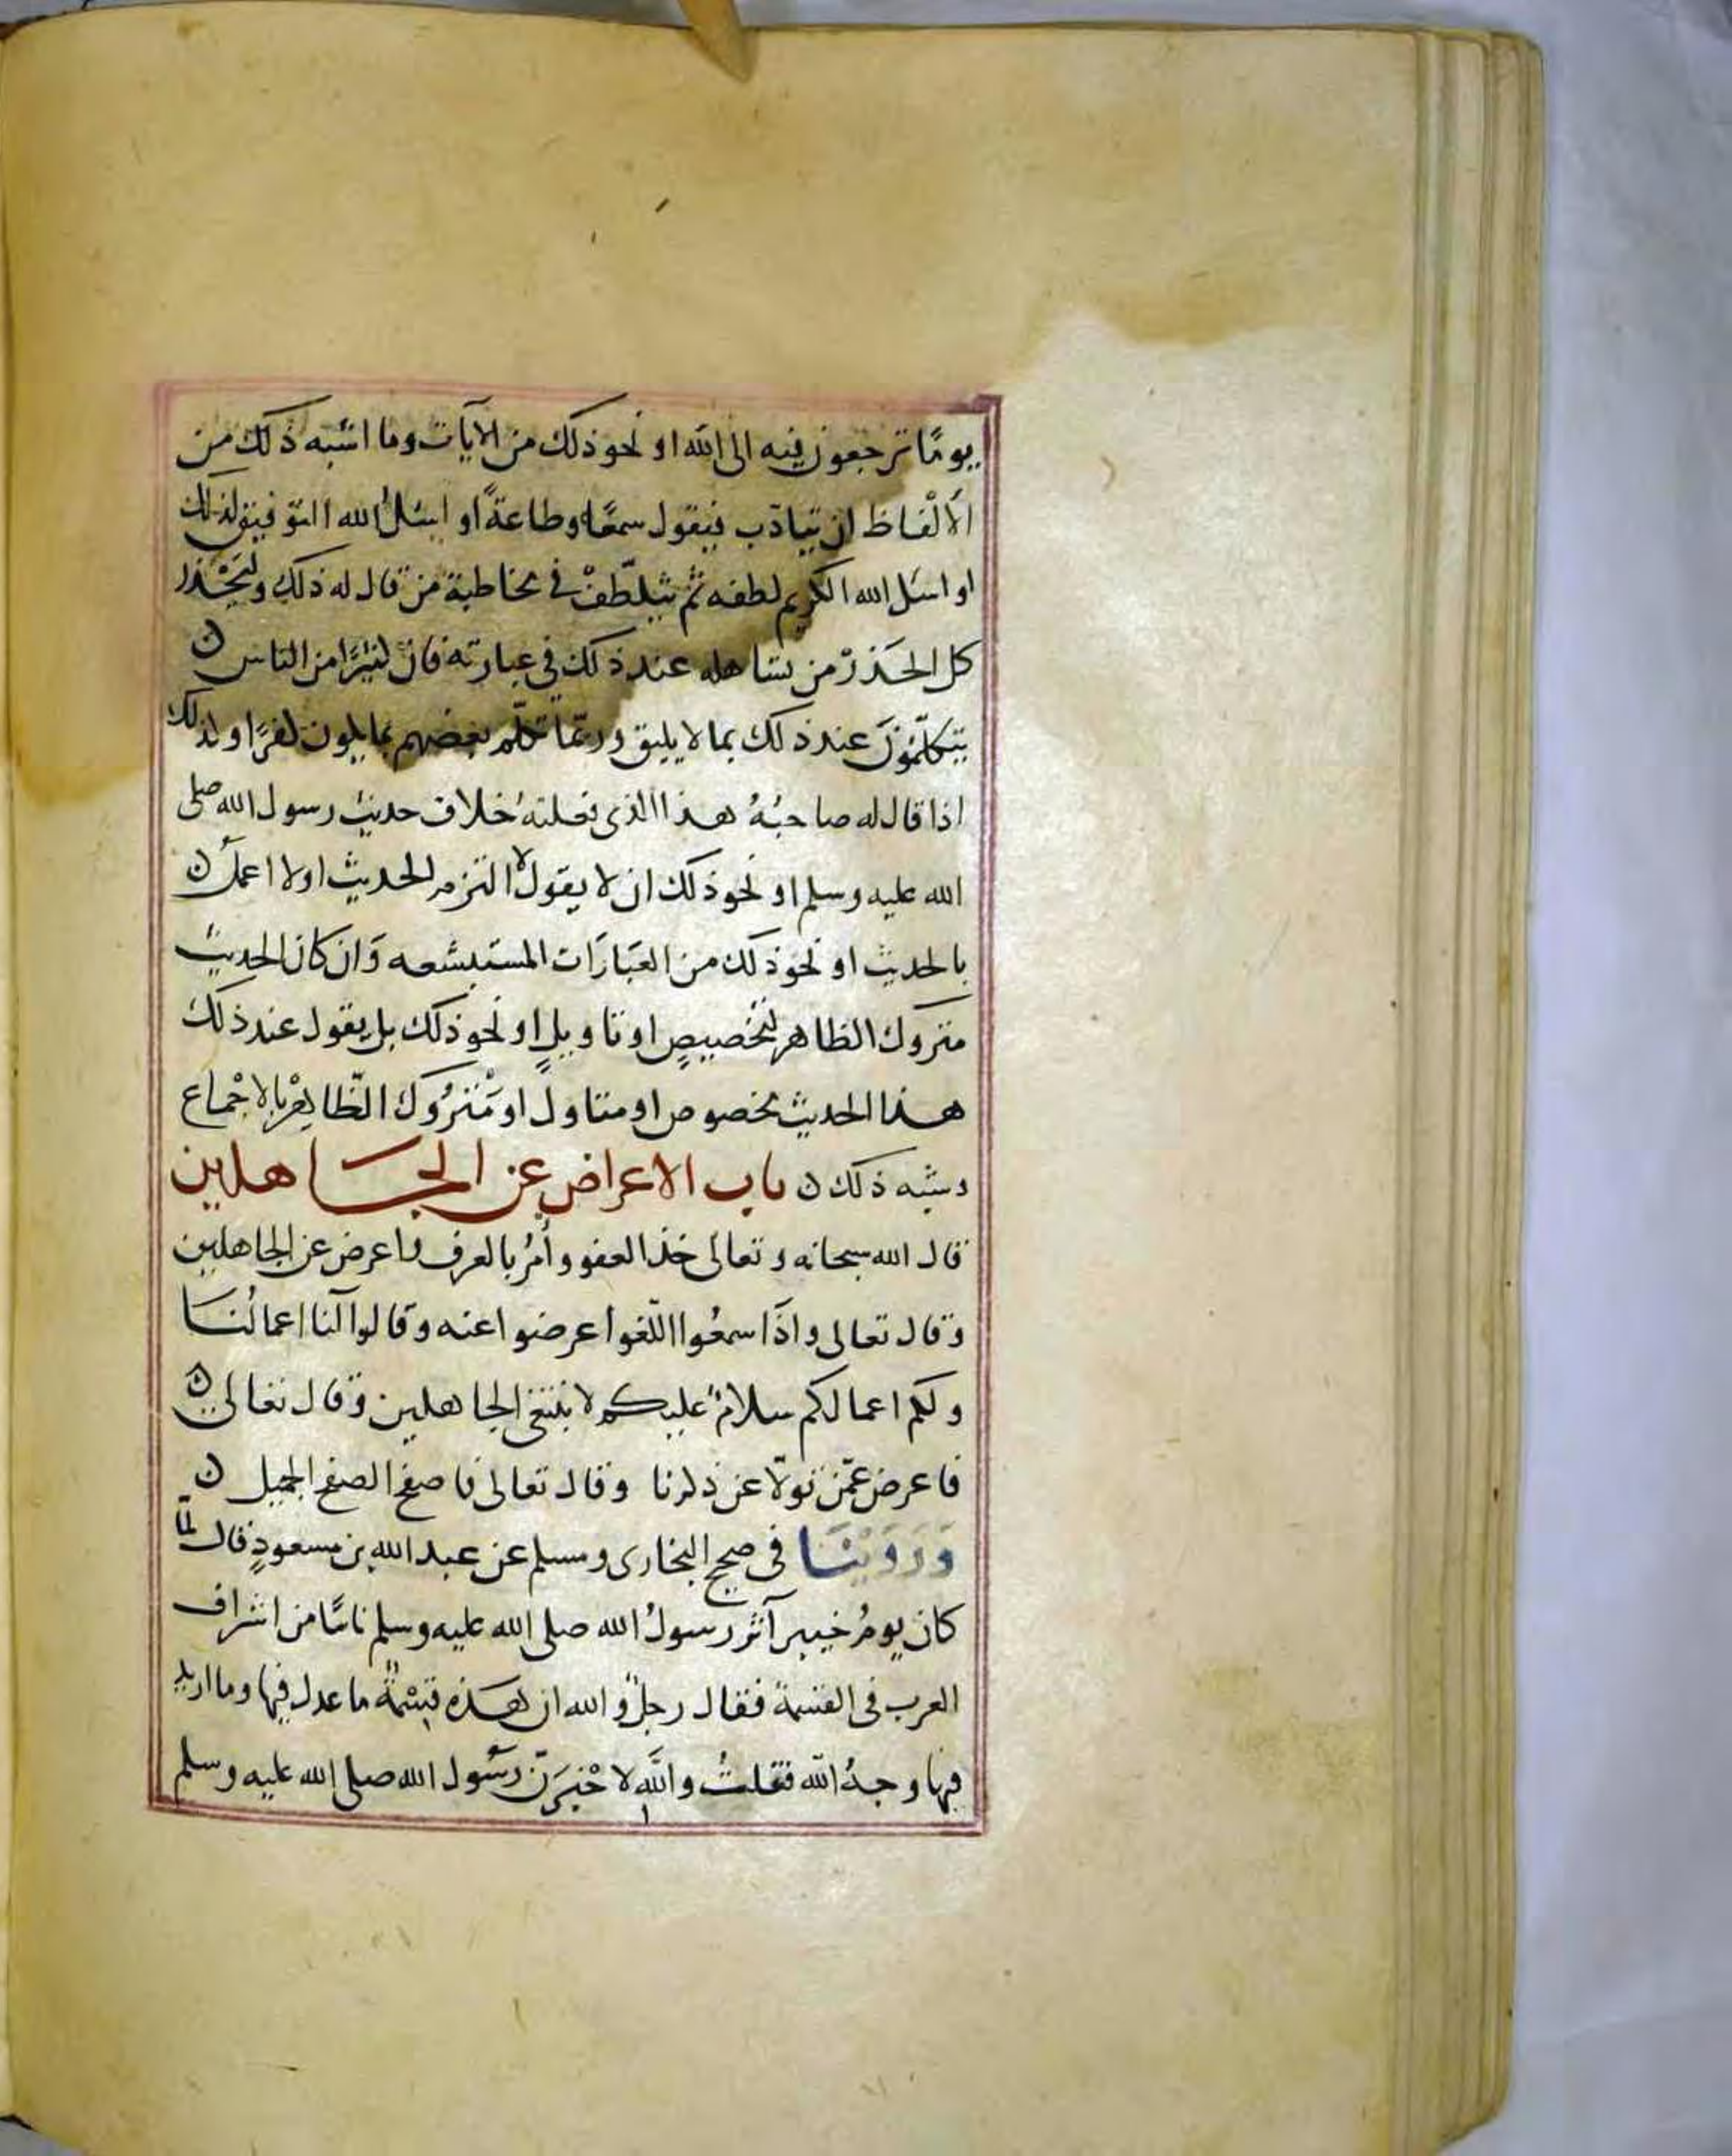 يومًا ترجعون فيه الى الله او نحو ذلك من الآيات وما اشبه ذلك من
الألْفاظ ان يتأدّب فيقول سمعًا وطاعةً او اسئلُ الله التوفيق لذلك
او اسئل الله الكريم لطفه ثم يتلطّفْ في مخاطبة من قال له ذلك وليَحْذر
كل الحذر من تساهله عند ذلك في عبارته فان كثيرًا من الناس ن
يتكلّمُونَ عند ذلك بما لا يليق وربّما تكلّم بعضهم بما يكون كفرًا وكذلك
اذا قال له صاحبُهُ هذا الذى فعلتهُ خلاف حديث رسول الله صلى
الله عليه وسلم او نحو ذلك ان لا يقول لا التزم الحديث او لا اعملُ ن
بالحديث او نحو ذلك من العبَارَات المستبشعه وَان كان الحديث
متروك الظاهر لتخصيصٍ او تاويلٍ او نحو ذلك بل يقول عند ذلك
هذا الحديث مخصوص او متاولٌ او مَتْرُوك الظّاهِرْ بالاجْماع
وشبه ذلك ن باب الاعراض عن الجاهلين
قال الله سبحانه وتعالى خذ العفو وأمُرْ بالعرف واعرض عن الجاهلين
وقال تعالى واذَا سمعُوا اللّغوا عرضوا عنه وقالوا لنا اعمالُنا
ولكم اعمالكم سلامٌ عليكم لا نبتغى الجاهلين وقال تعالى ن
فاعرض عمّن تولّا عن ذكرنا وقال تعالى فاصفح الصفح الجميل ن
وَرَوَيْنَا فى صحيح البخارى ومسلم عن عبد الله بن مسعودٍ قال لمّا
كان يومُ خيبر آثر رسولُ الله صلى الله عليه وسلم ناسًا من اشراف
العرب فى القسمة فقال رجلٌ والله ان هذه قِسْمةٌ ما عدل فيها وما اريد
فيها وجهُ الله فقلتُ والله لاخْبِرَنّ رسُول الله صلى الله عليه وسلم